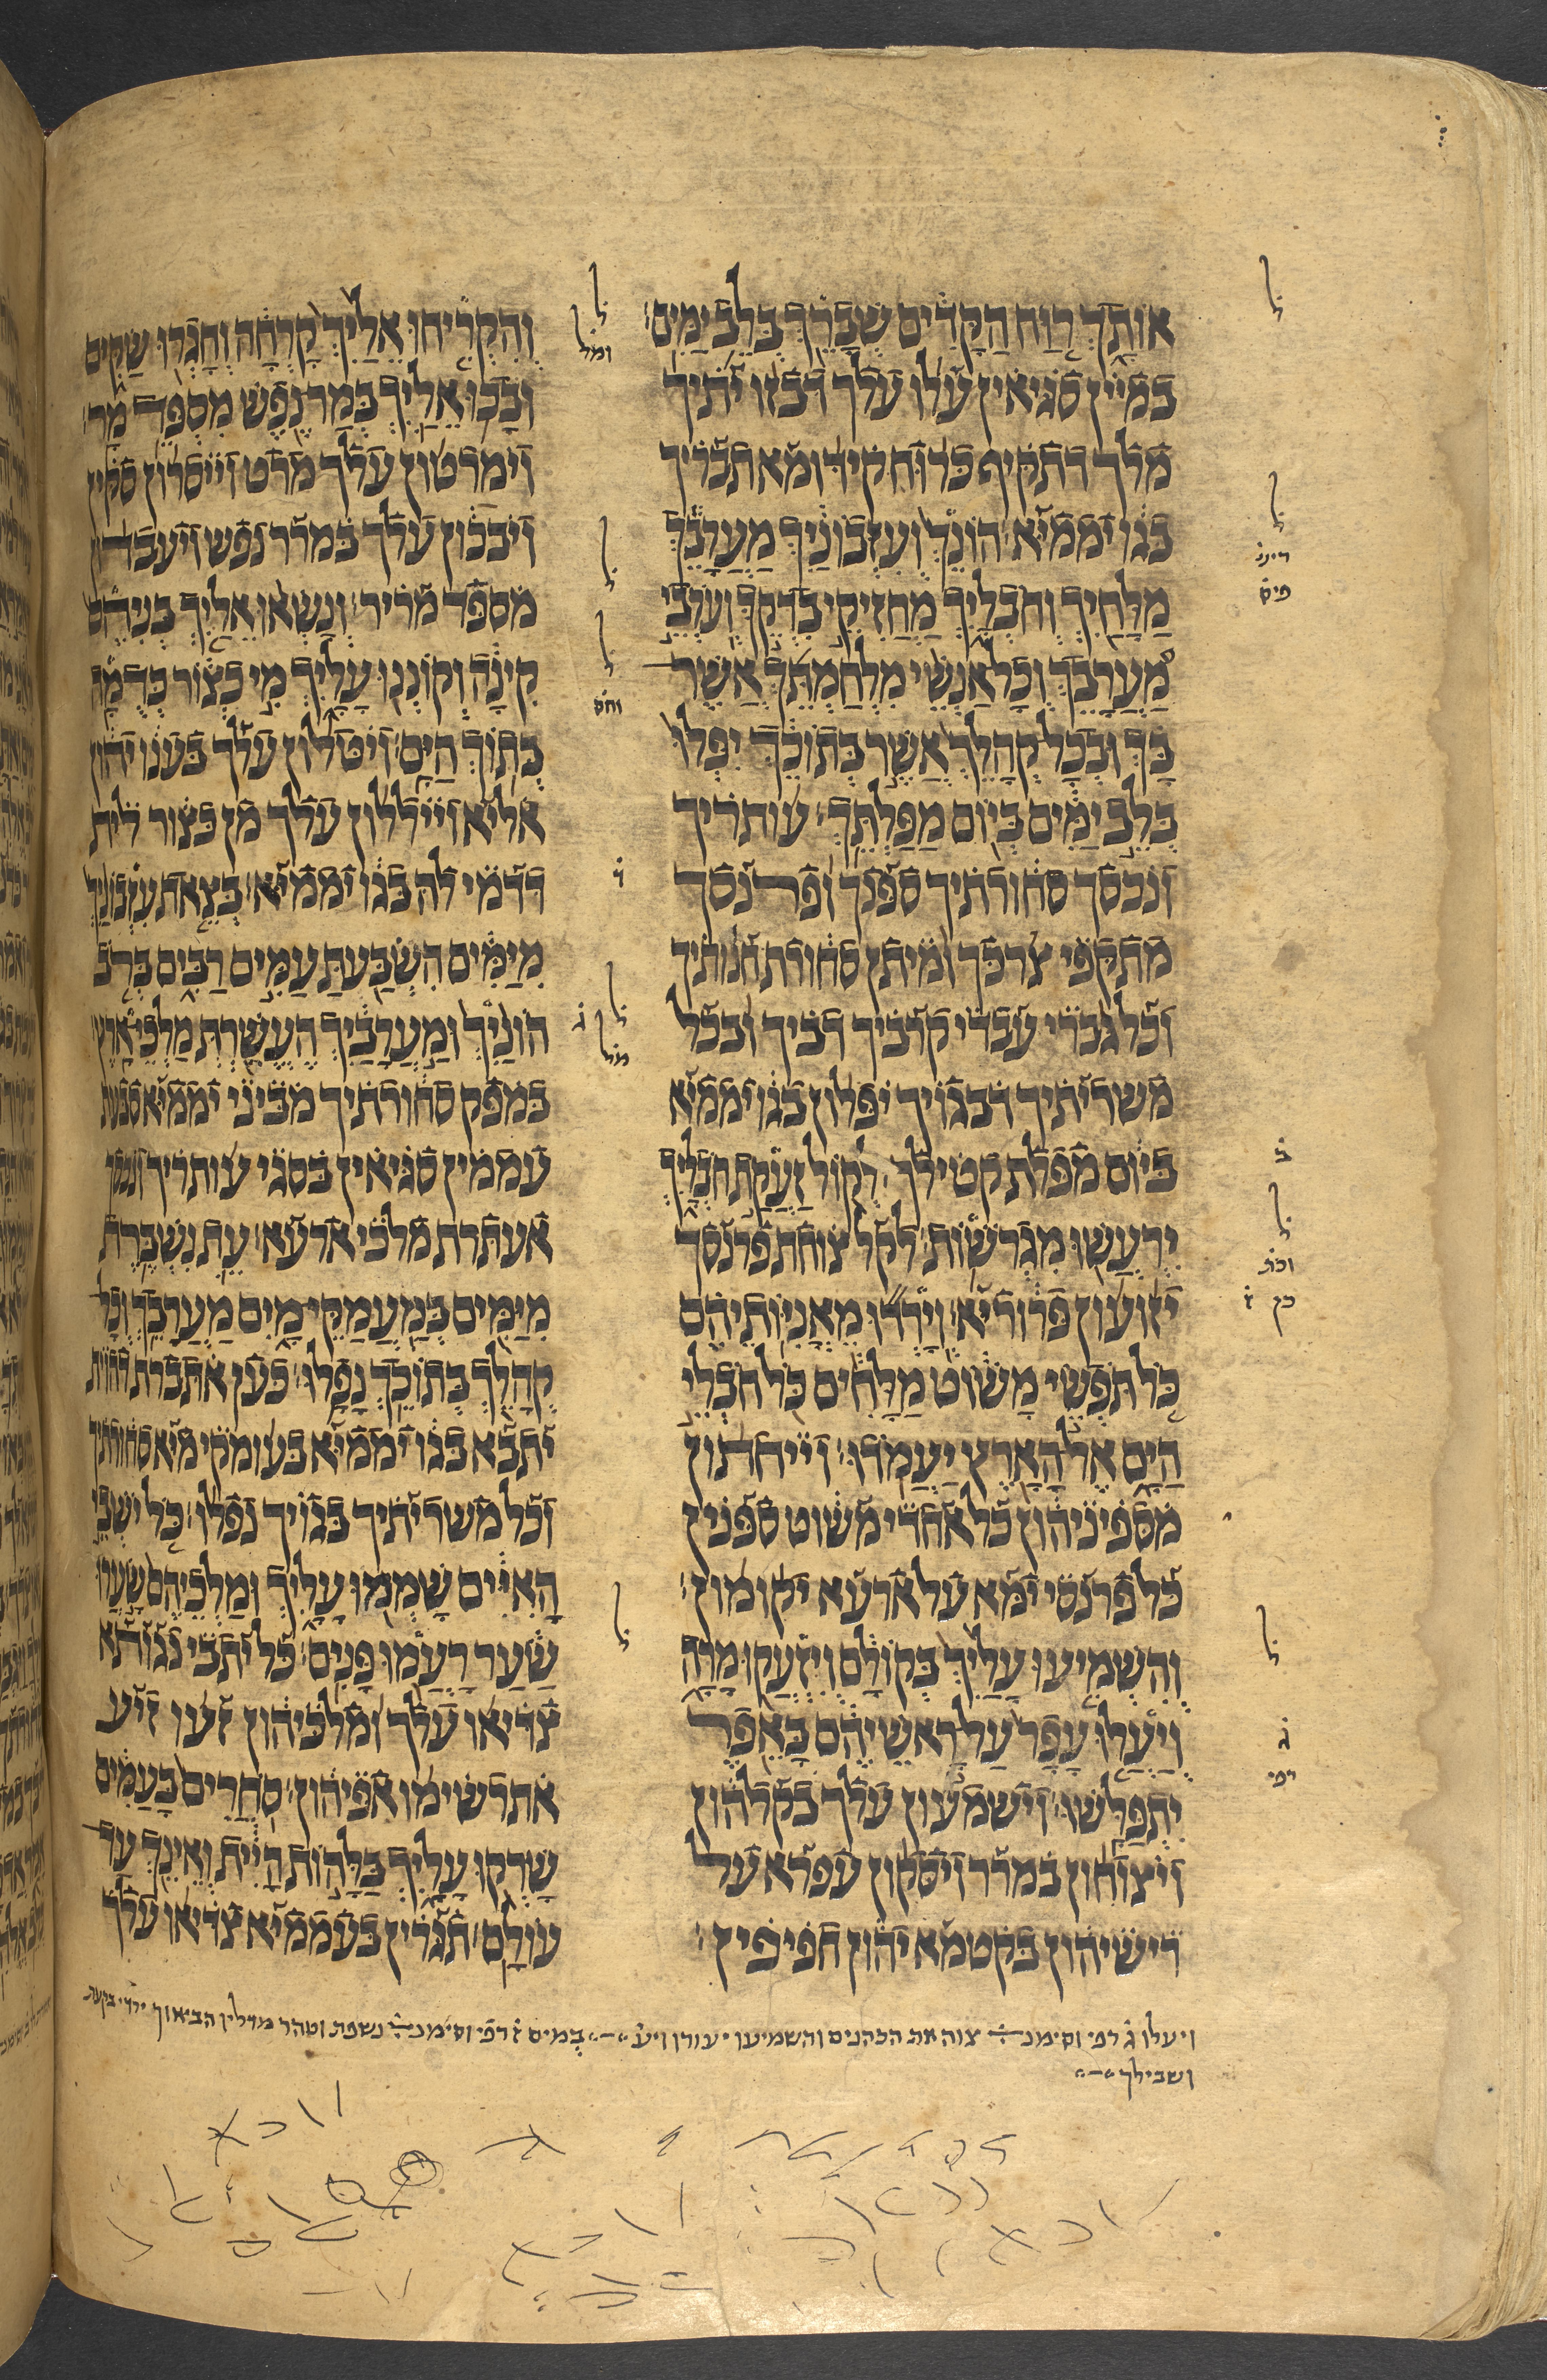 אותך רוח הקדים שברך בלב ימים׃
במיין סגיאין עלו עלך דבזו יתיך
מלך דתקיף כרוח קידומא תבריך
בגו יממיא׃ הונך ועזבוניך מערבך
מלחיך וחבליך מחזיקי בדקך וערבי
מערבך וכל אנשי מלחמתך אשר
בך ובכל קהלך אשר בתוכך יפלו
בלב ימים ביום מפלתך׃ עותריך
ונכסך סחורתיך ספנך ופרנסך
מתקפי צרכך ומיתן סחורת חנותיך
וכל גברי עבדי קרביך דביך ובכל
משריתיך דבגויך יפלון בגו יממיא
ביום מפלת קטילך׃ לקול זעקת חבליך
ירעשו מגרשות׃ לקל צוחת פרנסך
יזועון פרוריא׃ וירדו מאניותיהם
כל תפשי משוט מלחים כל חבלי
הים אל הארץ יעמדו׃ וייחתון
מספיניהון כל אחדי משוט ספנין
כל פרנסי ימא על ארעא יקומון׃
והשמיעו עליך בקולם ויזעקו מרה
ויעלו עפר על ראשיהם באפר
יתפלשו׃ וישמעון עלך בקלהון
ויצוחון במרר ויסקון עפרא על
רישיהון בקטמא יהון חפיפין׃
והקריחו אליך קרחה וחגרו שקים
ובכו אליך במר נפש מספד מר׃
וימרטון עלך מרט וייסרון סקין
ויבכון עלך במרר נפש ויעבדון
מספד מריר׃ ונשאו אליך בניהם
קינה וקוננו עליך מי כצור כדמה
בתוך הים׃ ויטלון עלך בענויהון
אליא וייללון עלך מן כצור לית
דדמי לה בגו יממיא׃ בצאת עזבוניך
מימים השבעת עמים רבים ברב
הוניך ומערביך העשרת מלכי ארץ׃
במפק סחורתיך מביני יממיא סבעת
עממין סגיאין בסגי עותריך ונכסך
אעתרת מלכי ארעא׃ עת נשברת
מימים במעמקי מים מערבך וכל
קהלך בתוכך נפלו׃ כען אתברת דהוית
יתבא בגו יממיא בעומקי מיא סחורתיך
וכל משריתיך בגויך נפלו׃ כל ישבי
האיים שממו עליך ומלכיהם שערו
שער רעמו פנים׃ כל יתבי נגותא
צדיאו עלך ומלכיהון זעו זיע
אתרשימו אפיהון׃ סחרים בעמים
שרקו עליך בלהות היית ואינך עד
עולם׃ תגרין בעממיא צדיאו עלך
ויעלו ג רפי וסימנ צוה את הכהנים והשמיעו יעורו ויע במים ז רפי וסימנ נשפת וטהר מדלין הביאוך יורדי בקעת
ושבילך